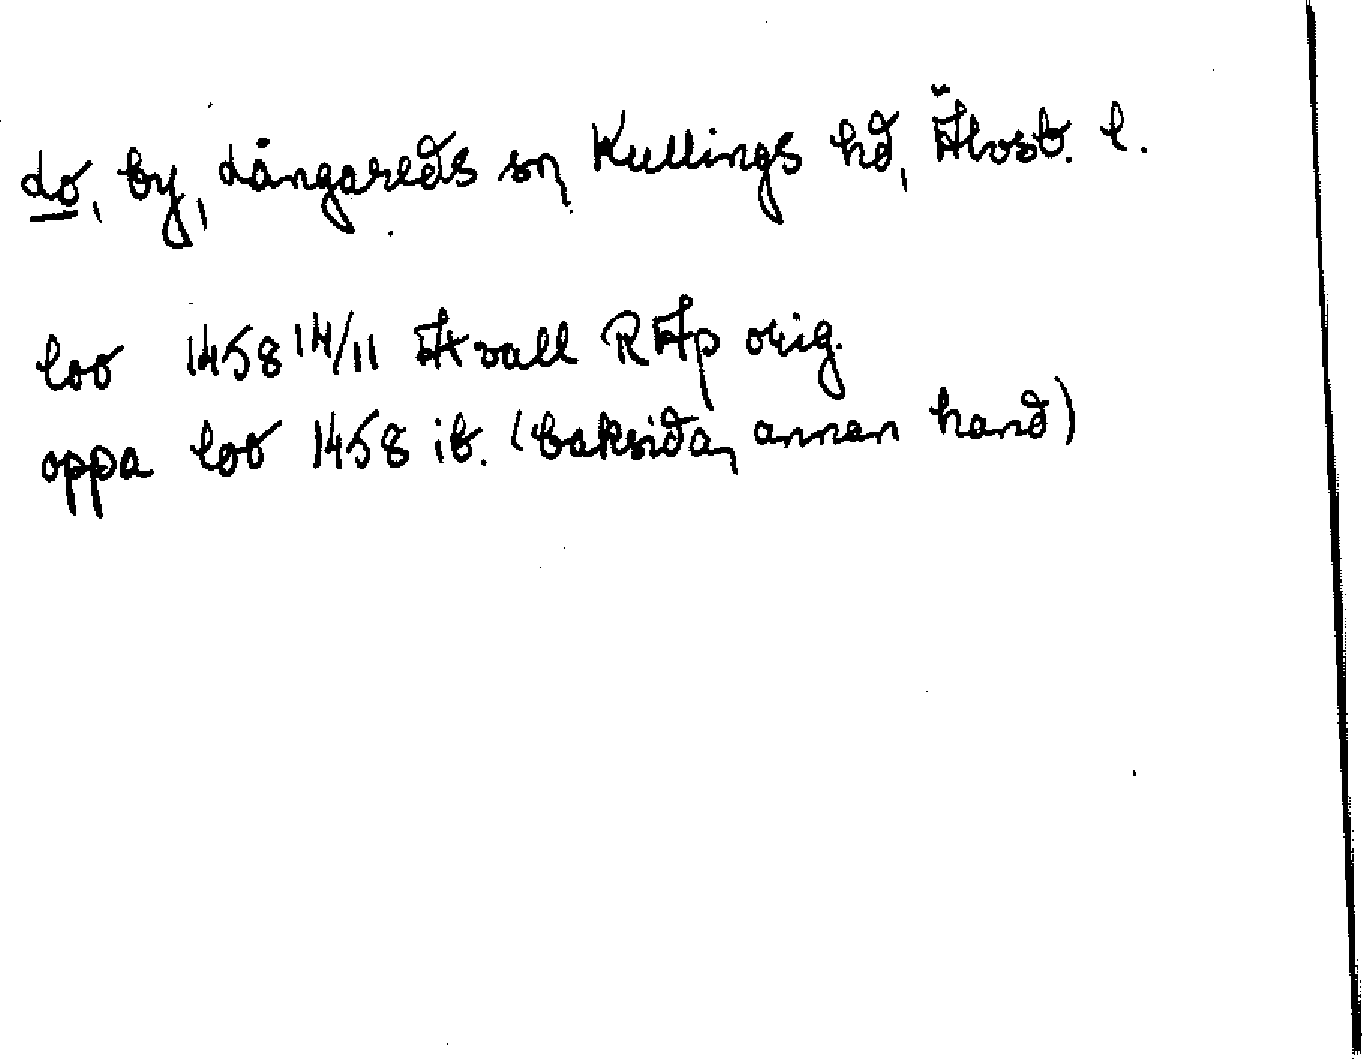 Lo, by, Långareds sn, Kullings hd, Älvsb. l.
loo 1458 14/11 Avall RAp orig.
oppa loo 1458 ib. (baksida, annan hand)